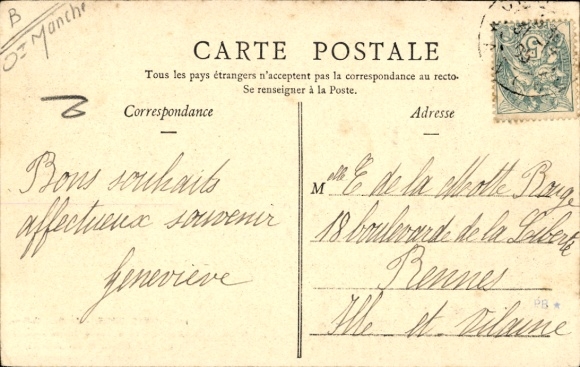 B
Ot Manche
CARTE POSTALE
Tous les pays étrangers n'acceptent pas la correspondance au recto.
Se renseigner à la Poste.
Correspondance
Adresse
Bons souhaits
affectueux souvenir
Geneviève
Melle E de la Motte Rouge
18 boulevarde de la Liberté
Rennes
Ille et Vilaine